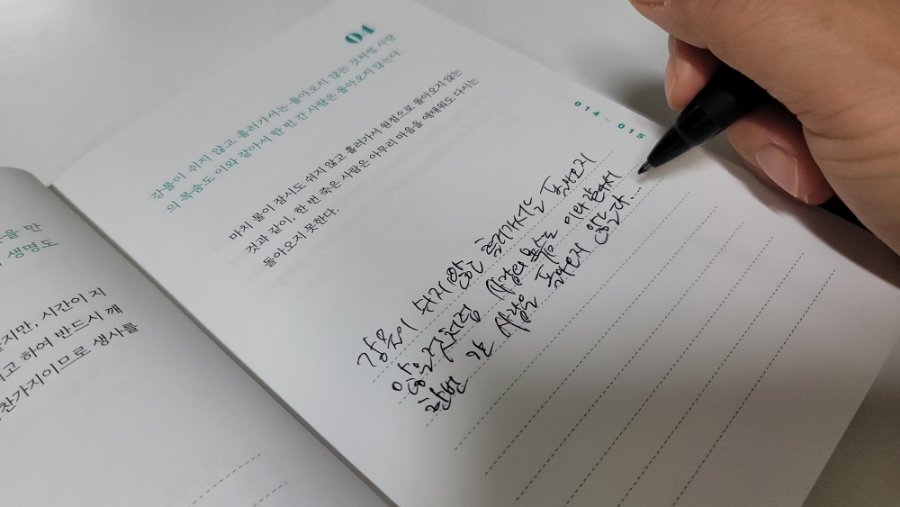 을 만
생명도
지만, 시간이 지
고 하여 반드시 깨
찬가지이므로 생사를
04
강물이 쉬지 않고 흘러가서는 돌아오지 않는 것처럼 사람
의 목숨도 이와 같아서 한 번 간 사람은 돌아오지 않는다.
마치 물이 잠시도 쉬지 않고 흘러가서 원점으로 돌아오지 않는
것과 같이, 한 번 죽은 사람은 아무리 마음을 애태워도 다시는
돌아오지 못한다.
014-015
강물이 쉬지 않고 흘러가서는 돌아오지
않는 것처럼 사람의 목숨은 이와 같아서
한번 간 사람은 돌아오지 않는다...